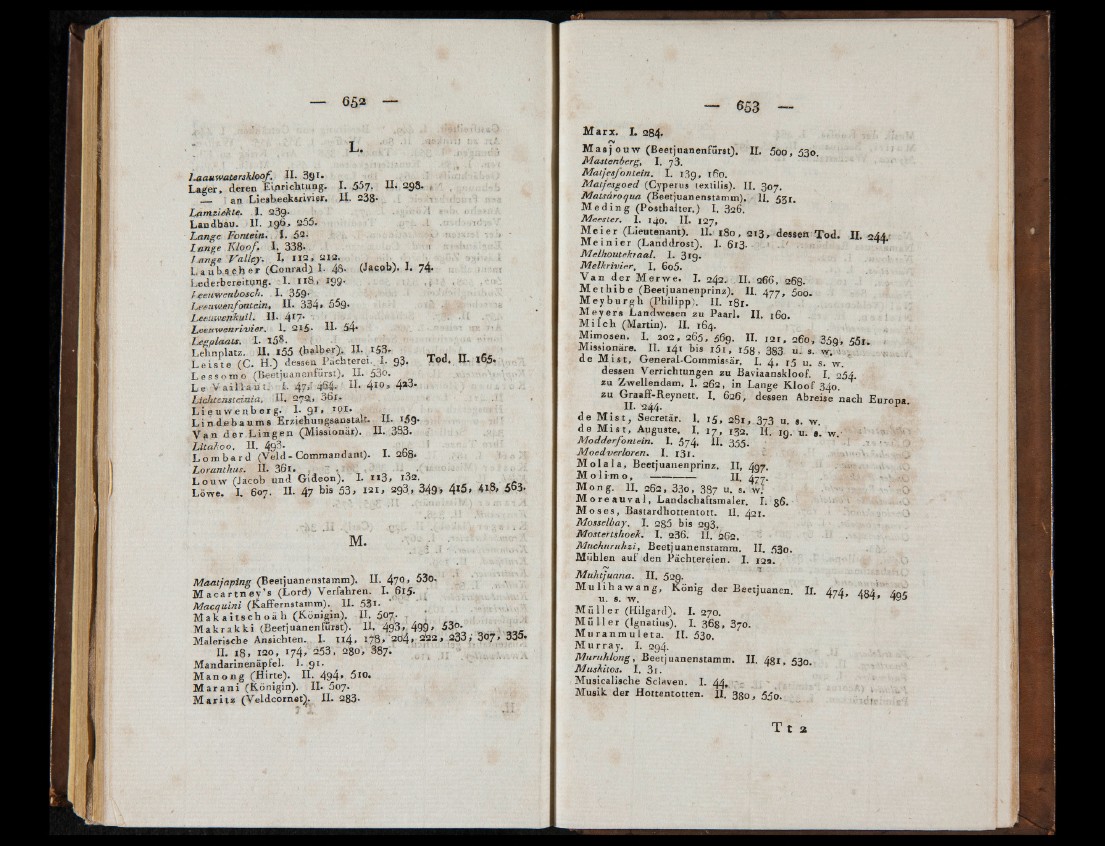 — 652 —
L.
Laauwaterskloof. II. 391.
Lager, deren Einrichtung. I. 557. II. 298.
— an Liesbeeksrivier. II. 238.
Lamziekte. I. 239.
Landbau. II. 196, 255.
Lange Fontein. I. 52.
Lange Kloof. I. 338.
Lange Valley. I, 112, 212.
Laubscher (Conrad) I. 48. (Jacob). I. 74.
Lederbereitung. I. 118, 199.
Leeuwenbosch. I. 359.
Leeuwenfontein. II. 334, 559.
Leeuwenkuil. II. 417.
Leeuwenrivier. I. 215. II. 54.
Legplaats. I. 158.
Lehnplatz. II. 155 (halber). II. 153.
Leiste (C. H.) dessen Pachterei. I. 93. Tod. II. 165.
Lessomo (Beetjuanenfürst). II. 530.
Le Vaillant. I. 47, 464. II. 410, 423.
Lichtensteinia. II. 272, 361.
Lieuwenberg. I. 91, 101.
Lindebaums Erziehungsanstalt. II. 159.
Van der Lingen (Missionär). II. 383.
Litakoo. II. 493.
Lombard (Veld-Commandant). I. 268.
Loranthus. II. 361.
Louw (Jacob und Gideon). I. 113, 132.
Löwe. I. 607. II. 47 bis 53, 121, 293, 349, 415, 418, 563.
M.
Maatjaping (Beetjuanenstamm). II. 470, 530.
Macartney's (Lord) Verfahren. I. 615.
Macquini (Kaffernstamm). II. 531.
Makaitschoäh (Königin). II. 507.
Makrakki (Beetjuanenfürst). II. 493, 499, 530.
Malerische Ansichten. I. 114, 178, 204, 222, 233, 307, 335.
II. 18, 120, 174, 253, 280, 387.
Mandarinenäpfel. I. 91.
Manong (Hirte). II. 494, 510.
Marani (Königin). II. 507.
Maritz (Veldcornet). II. 283.
— 653 —
Marx. I. 284.
Masjouw (Beetjuanenfürst). II. 500, 530.
Mastenberg. I. 73.
Matjesfontein. I. 139, 160.
Matjesgoed (Cyperus textilis). II. 307.
Matsàroqua (Beetjuanenstamm). II. 531.
Meding (Posthalter.) I. 326.
Meester. I. 140. II. 127,
Meier (Lieutenant). II. 180, 213, dessen Tod. II. 244.
Meinier (Landdrost). I. 613.
Melhoutekraal. I. 319.
Melkrivier, I. 605.
Van der Merwe. I. 242. II. 266, 268.
Methibe (Beetjuanenprinz). II. 477, 500.
Meyburgh (Philipp). II. 181.
Meyers Landwesen zu Paarl. II. 160.
Milch (Martin). II. 164.
Mimosen. I. 202, 265, 569. II. 121, 260, 359, 551.
Missionäre. II. 141 bis 151, 158, 383 u. s. w.
de Mist, General-Commissär, I. 4, 15 u. s. w.
dessen Verrichtungen zu Baviaanskloof. I. 254.
zu Zwellendam. I. 262, in Lange Kloof 340.
zu Graaff-Reynett. I. 626, dessen Abreise nach Europa.
II. 244.
de Mist, Secretär. I. 15, 281, 373 u. s. w.
de Mist, Auguste. I. 17, 132. II. 19. u. s. w.
Modderfontein. I. 574. II. 355.
Moedverloren. I. 131.
Molala, Beetjuanenprinz. II. 497.
Molimo, ——— II. 477.
Mong. II. 262, 330, 387 u. s. w.
Moreauval, Landschaftsmaler. I. 86.
Moses, Bastardhottentott. II. 421.
Mosselbay. I. 285 bis 293.
Mostertshoek. I. 236. II. 262.
Muchuruhzi, Beetjuanenstamm. II. 530.
Mühlen auf den Pächtereien. I. 122.
Muhtjuana. II. 529.
Mulihawang, König der Beetjuanen. II. 474, 484, 495
u. s. w.
Müller (Hilgard). I. 270.
Müller (Ignatius). I. 368, 370.
Muranmuleta. II. 530.
Murray. I. 294.
Muruhlong, Beetjuanenstamm. II. 481, 530.
Mushitos. I. 31.
Musicalische Sclaven. I. 44.
Musik der Hottentotten. II. 380, 550.
Tt 2